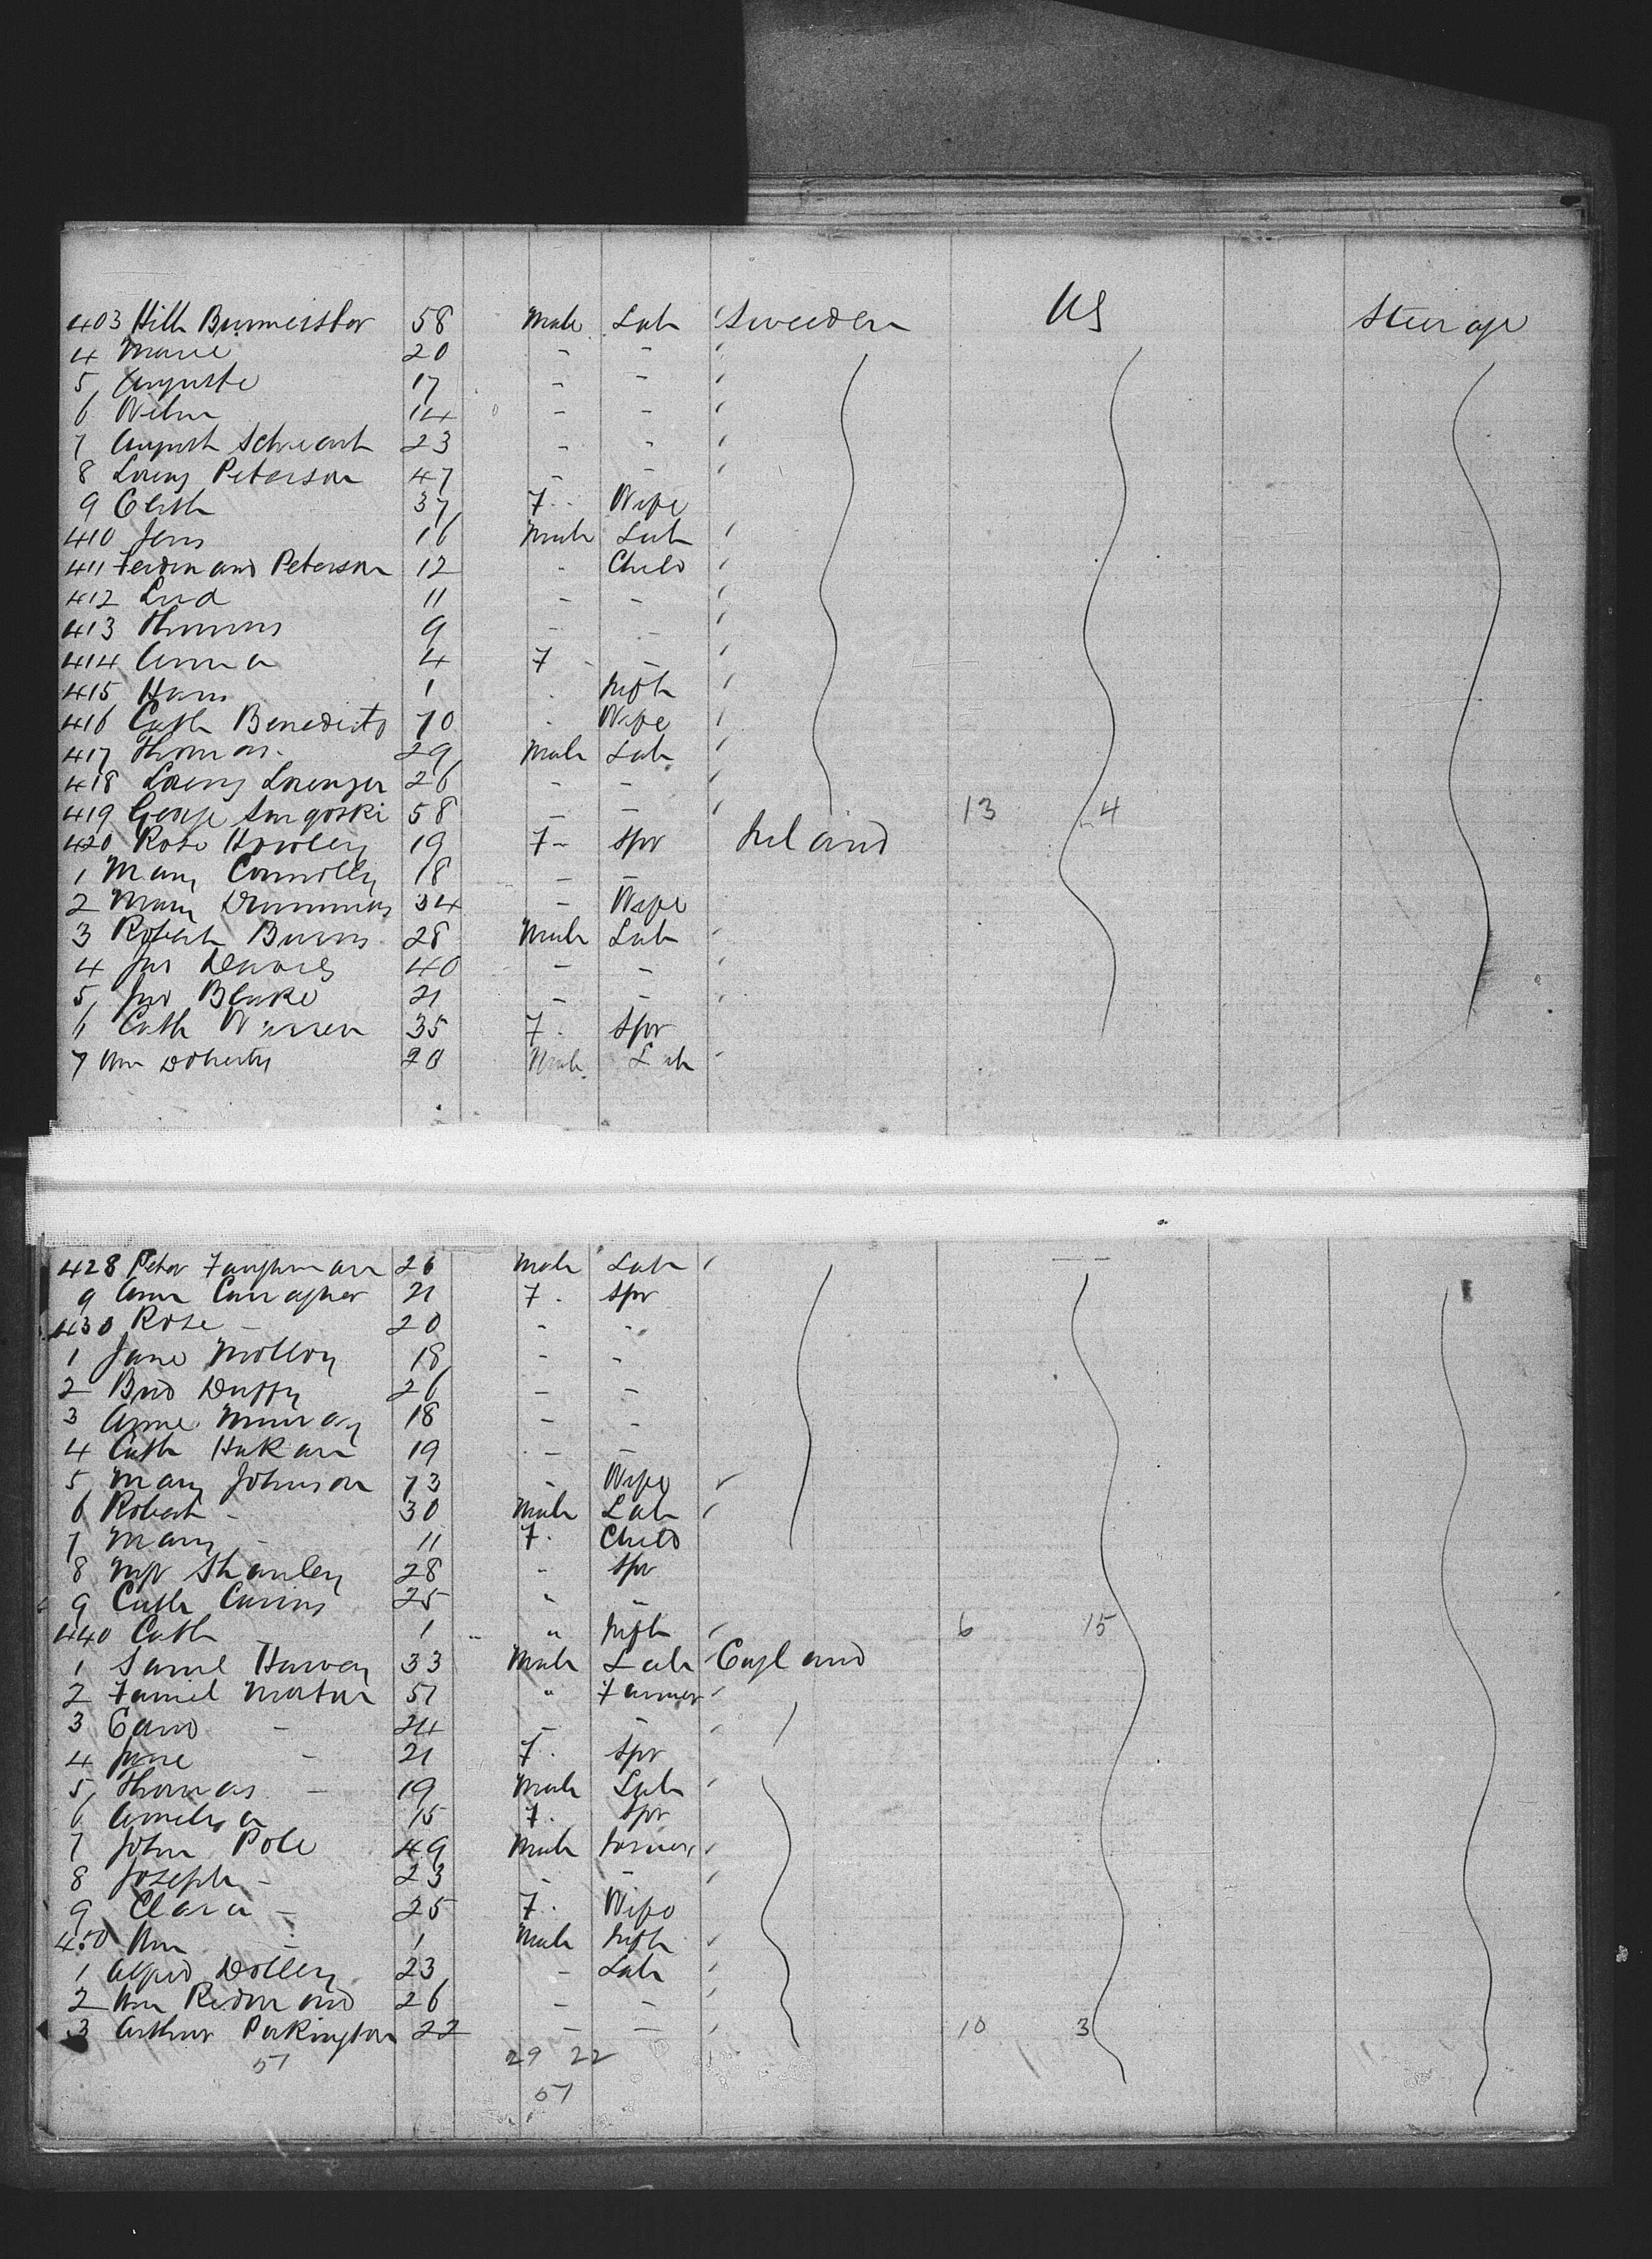 403 Hill Burmeister 58 Male Lab Sweeden US Steerage
4 Marie 20 - - "
5 Auguste 17 - - "
6 14 - - "
7 August Schwart 23 - - "
8 Lorenz Peterson 47 - -
9 37 F. Wife
410 Jens 16 Male Lab "
411 Ferdinand Peterson 12 " Child "
412 11 - - "
413 9 - - "
414 Anna 4 F - "
415 Hans 1 . Infth "
416 Cath Benedicts 70 . Wife "
417 Thomas 29 Male Lab "
418 Lorenz Lorenzen 26 - - "
419 George 58 - - " 13 4
420 Rose Howley 19 F - Spr Ireland
1 Mary Connolly 18 - -
2 Mary 34 - Wife
3 Robert Burns 28 Male Lab "
4 Jas 40 - - "
5 Jno Blake 21 - - "
6 Cath Warren 35 F. Spr
7 Wm Doherty 20 Male Lab "
428 Peter Faughnan 26 Male Lab "
9 Ann 21 F. Spr
430 Rose - 20 - -
1 Jane Molloy 18 - -
2 Brid Duffy 26 - -
3 Anne Murray 18 - -
4 Cath 19 - -
5 Mary Johnson 73 - Wife "
6 Robert - 30 Male Lab "
7 Mary - 11 F. Child
8 Shanley 28 " Spr
9 Cath 25 " "
440 Cath 1 " " Infth " 6 15
1 Saml Harvey 33 Male Lab England
2 51 " Farmer "
3 - 24 - - "
4 Jane - 21 F. Spr
5 Thomas - 19 Male Lab "
6 Amelia 15 F. Spr
7 John Pole 49 Male "
8 Joseph - 23 - - "
9 Clara - 25 F. Wife
450 Wm - 1 Male Infth "
1 Alfred Dolley 23 - Lab "
2 Wm Redmond 26 - - "
3 Arthur Parkington 22 - - " 10 3
51 29 22
51